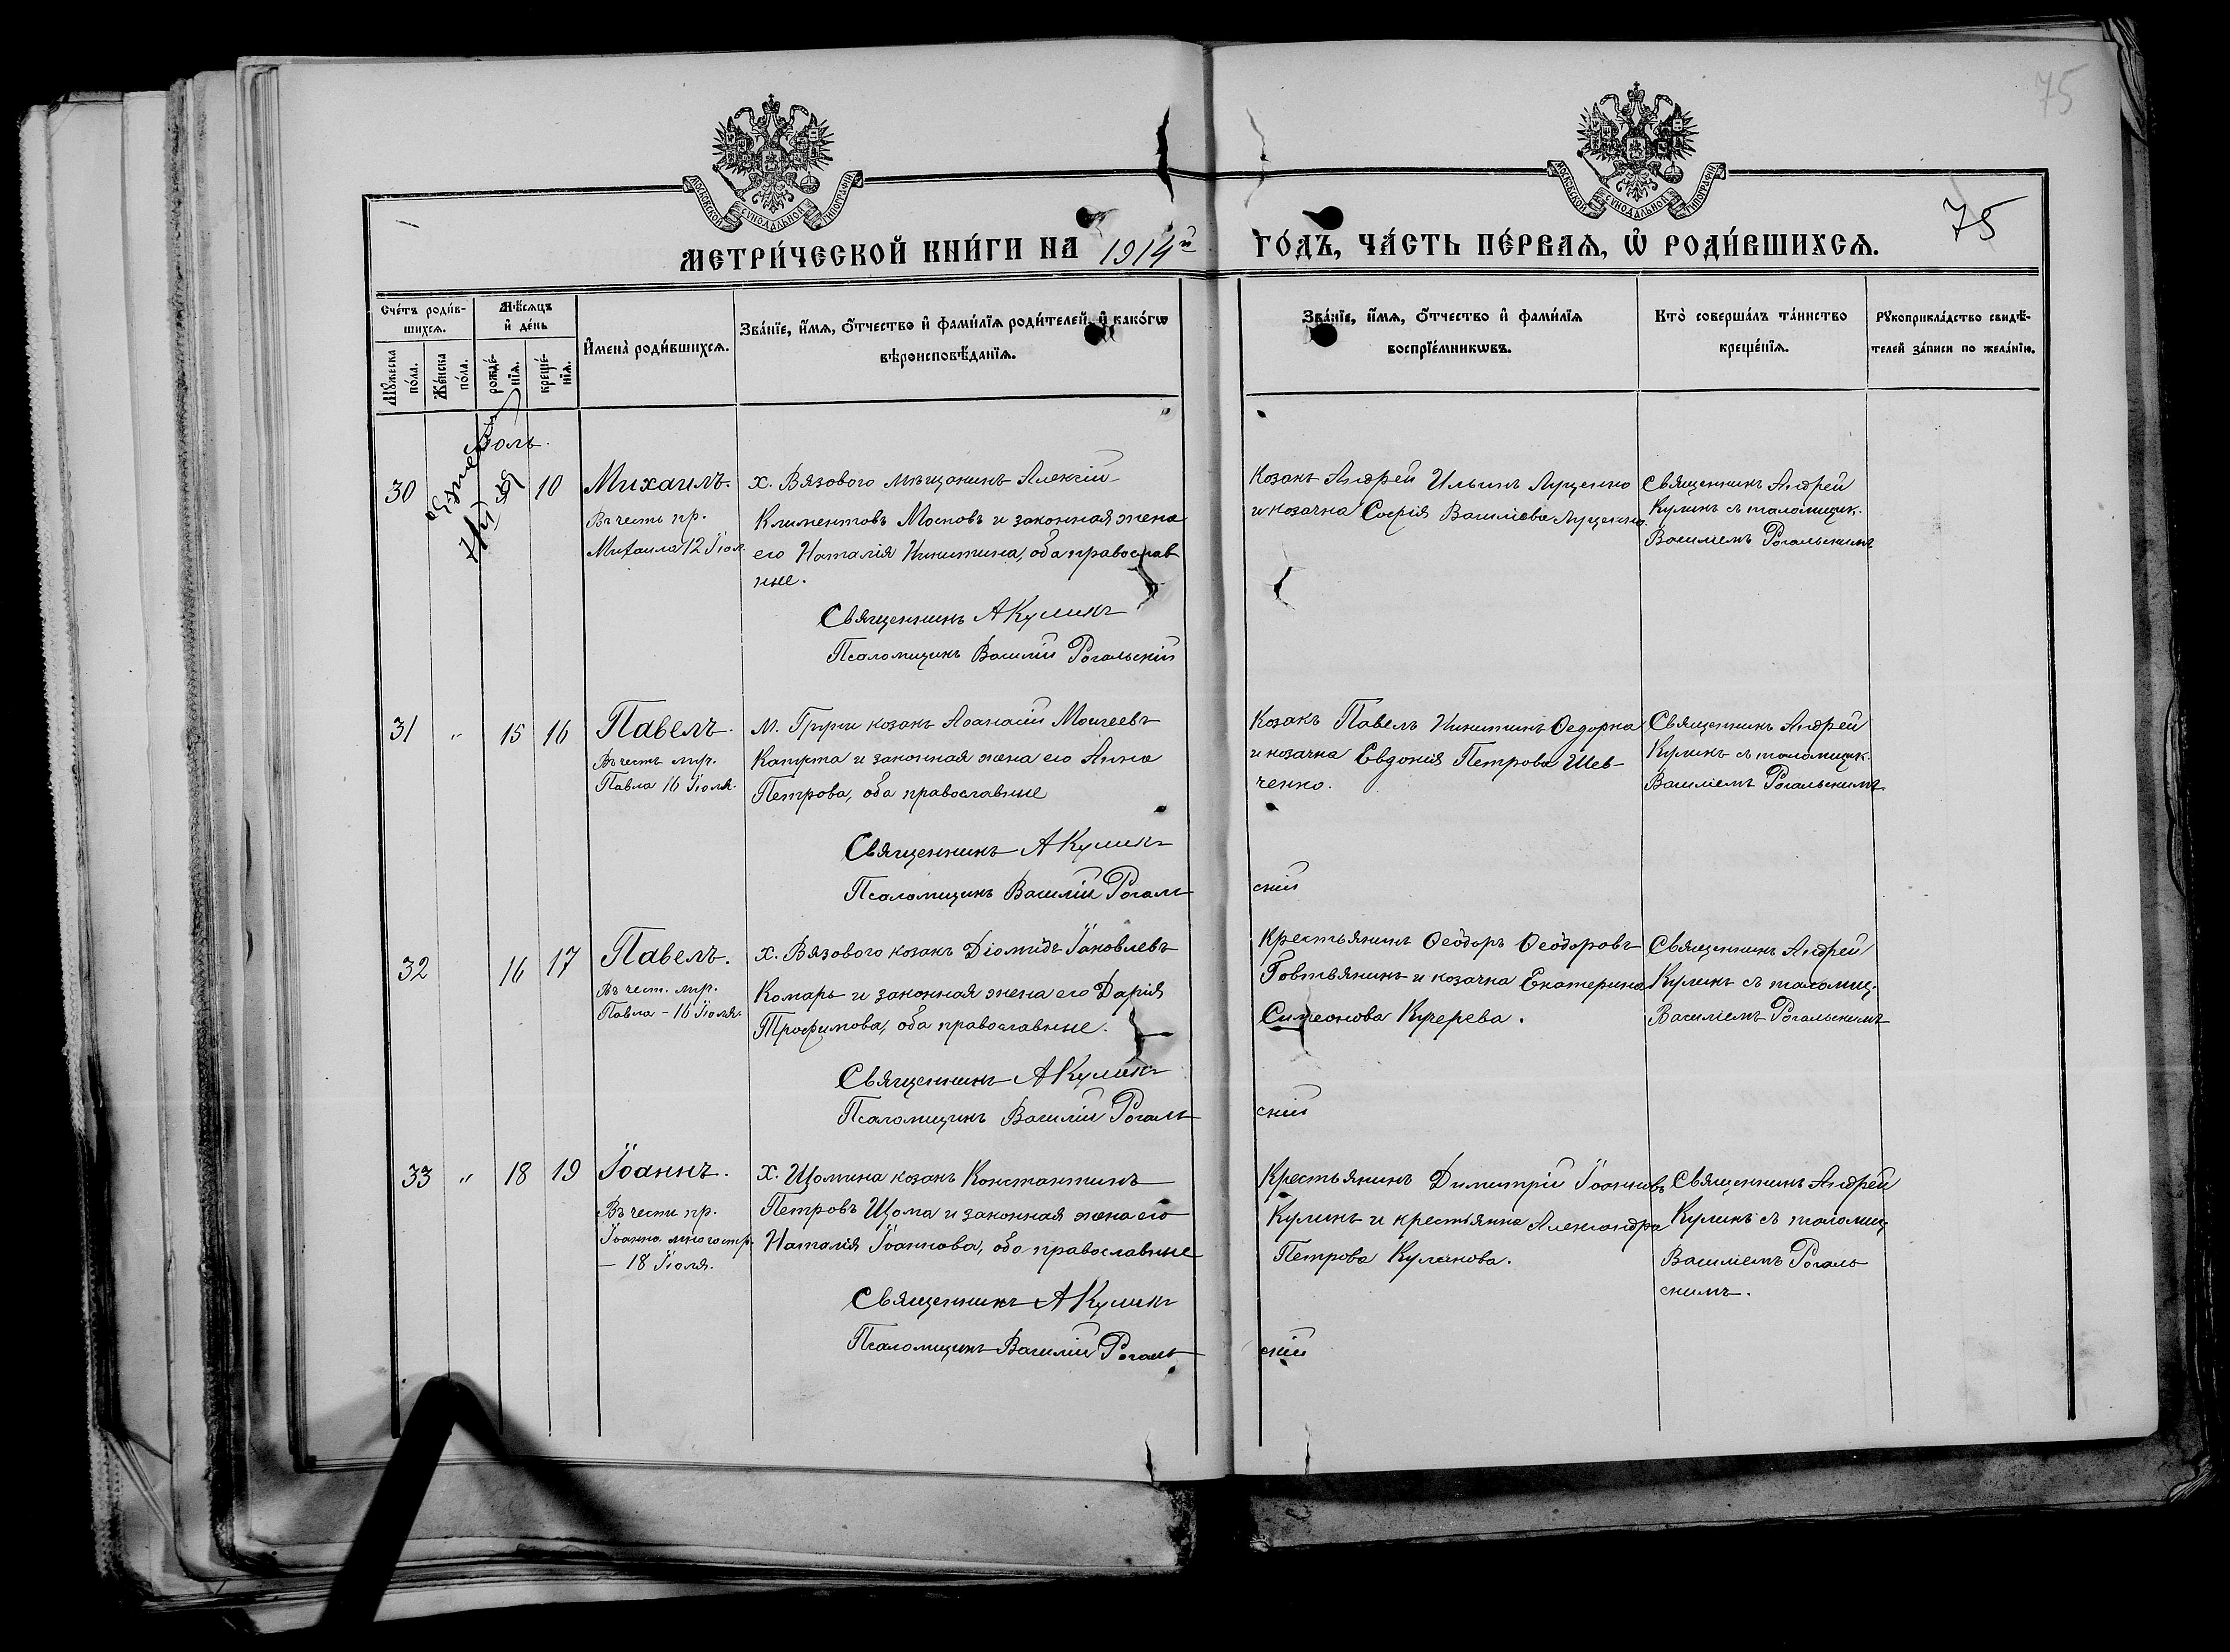 75
МОСКОВСКОЙ СУНОДАЛЬНОЙ ТИПОГРАФІИ
МОСКОВСКОЙ СУНОДАЛЬНОЙ ТИПОГРАФІИ
75
МЕТРИ́ЧЕСКОЙ КНИ́ГИ НА 1914й ГО́ДЪ, ЧА́СТЬ ПЕ́РВАѦ, Ѡ҆ РОДИ́ВШИХСѦ.
Сче́тъ роди́в-
шихсѧ.
Мѣ́сѧцъ
и҆ де́нь
Мꙋ́жеска
по́ла.
Же́нска
по́ла.
рожде́-
нїѧ.
креще́-
нїѧ.
И҆мена̀ роди́вшихсѧ.
Зва́нїе, и҆́мѧ, ѻ҆́тчество и҆ фамѝлїѧ роди́телей, и҆ како́гѡ
вѣроисповѣ́данїѧ.
Зва́нїе, и҆́мѧ, ѻ҆́тчество и҆ фамѝлїѧ
воспрїе́мникѡвъ.
Кто̀ соверша́лъ та́инство
креще́нїѧ.
Рꙋкоприкла́дство свидѣ́-
телей за́писи по жела́нїю.
Іюль.
30
10
Михаилъ.
Въ честь пр.
Михаила 12 Іюл.
х. Вязового мѣщанинъ Алексій
Климентовъ Мосповъ и законная жена
его Наталія Никитина, оба православ
ные.
Священникъ А Куликъ
Псаломщикъ Василій Рогальскій
Козакъ Андрей Ильинъ Луценко
и козачка Софія Василіева Луценко.
Священникъ Андрей
Куликъ съ псаломщик.
Василіемъ Рогальскимъ
31 " 15 16
Павелъ.
Въ честь муч.
Павла 16 Іюля.
м. Груни козакъ Аѳанасій Моисеевъ
Капуста и законная жена его Анна
Петрова, оба православные
Священникъ А Куликъ
Псаломщикъ Василій Рогаль
скій
Козакъ Павелъ Никитинъ Ѳедорка
и козачка Евдокія Петрова Шев-
ченко.
Священникъ Андрей
Куликъ съ псаломщик.
Василіемъ Рогальскимъ
32 16 17
Павелъ.
Въ чест. муч.
Павла - 16 Іюля.
х. Вязового козакъ Діомидъ Іаковлевъ
Комаръ и законная жена его Дарія
Трофимова, оба православные.
Священникъ А Куликъ
Псаломщикъ Василій Рогаль
скій
Крестьянинъ Ѳеодоръ Ѳеодоровъ
Говтвянинъ и козачка Екатерина
Симеонова Кучерева.
Священникъ Андрей
Куликъ съ псаломщ.
Василіемъ Рогальскимъ
33 " 18 19
Іоаннъ.
Въ честь пр.
Іоанна многостр.
- 18 Іюля.
х. Щомина козакъ Константинъ
Петровъ Щома и законная жена его
Наталія Іоаннова, оба православные
Священникъ А Куликъ
Псаломщикъ Василій Рогаль
скій
Крестьянинъ Димитрій Іоанновъ
Куликъ и крестьянка Александра
Петрова Куликова.
Священникъ Андрей
Куликъ съ псаломщ
Василіемъ Рогаль
скимъ.